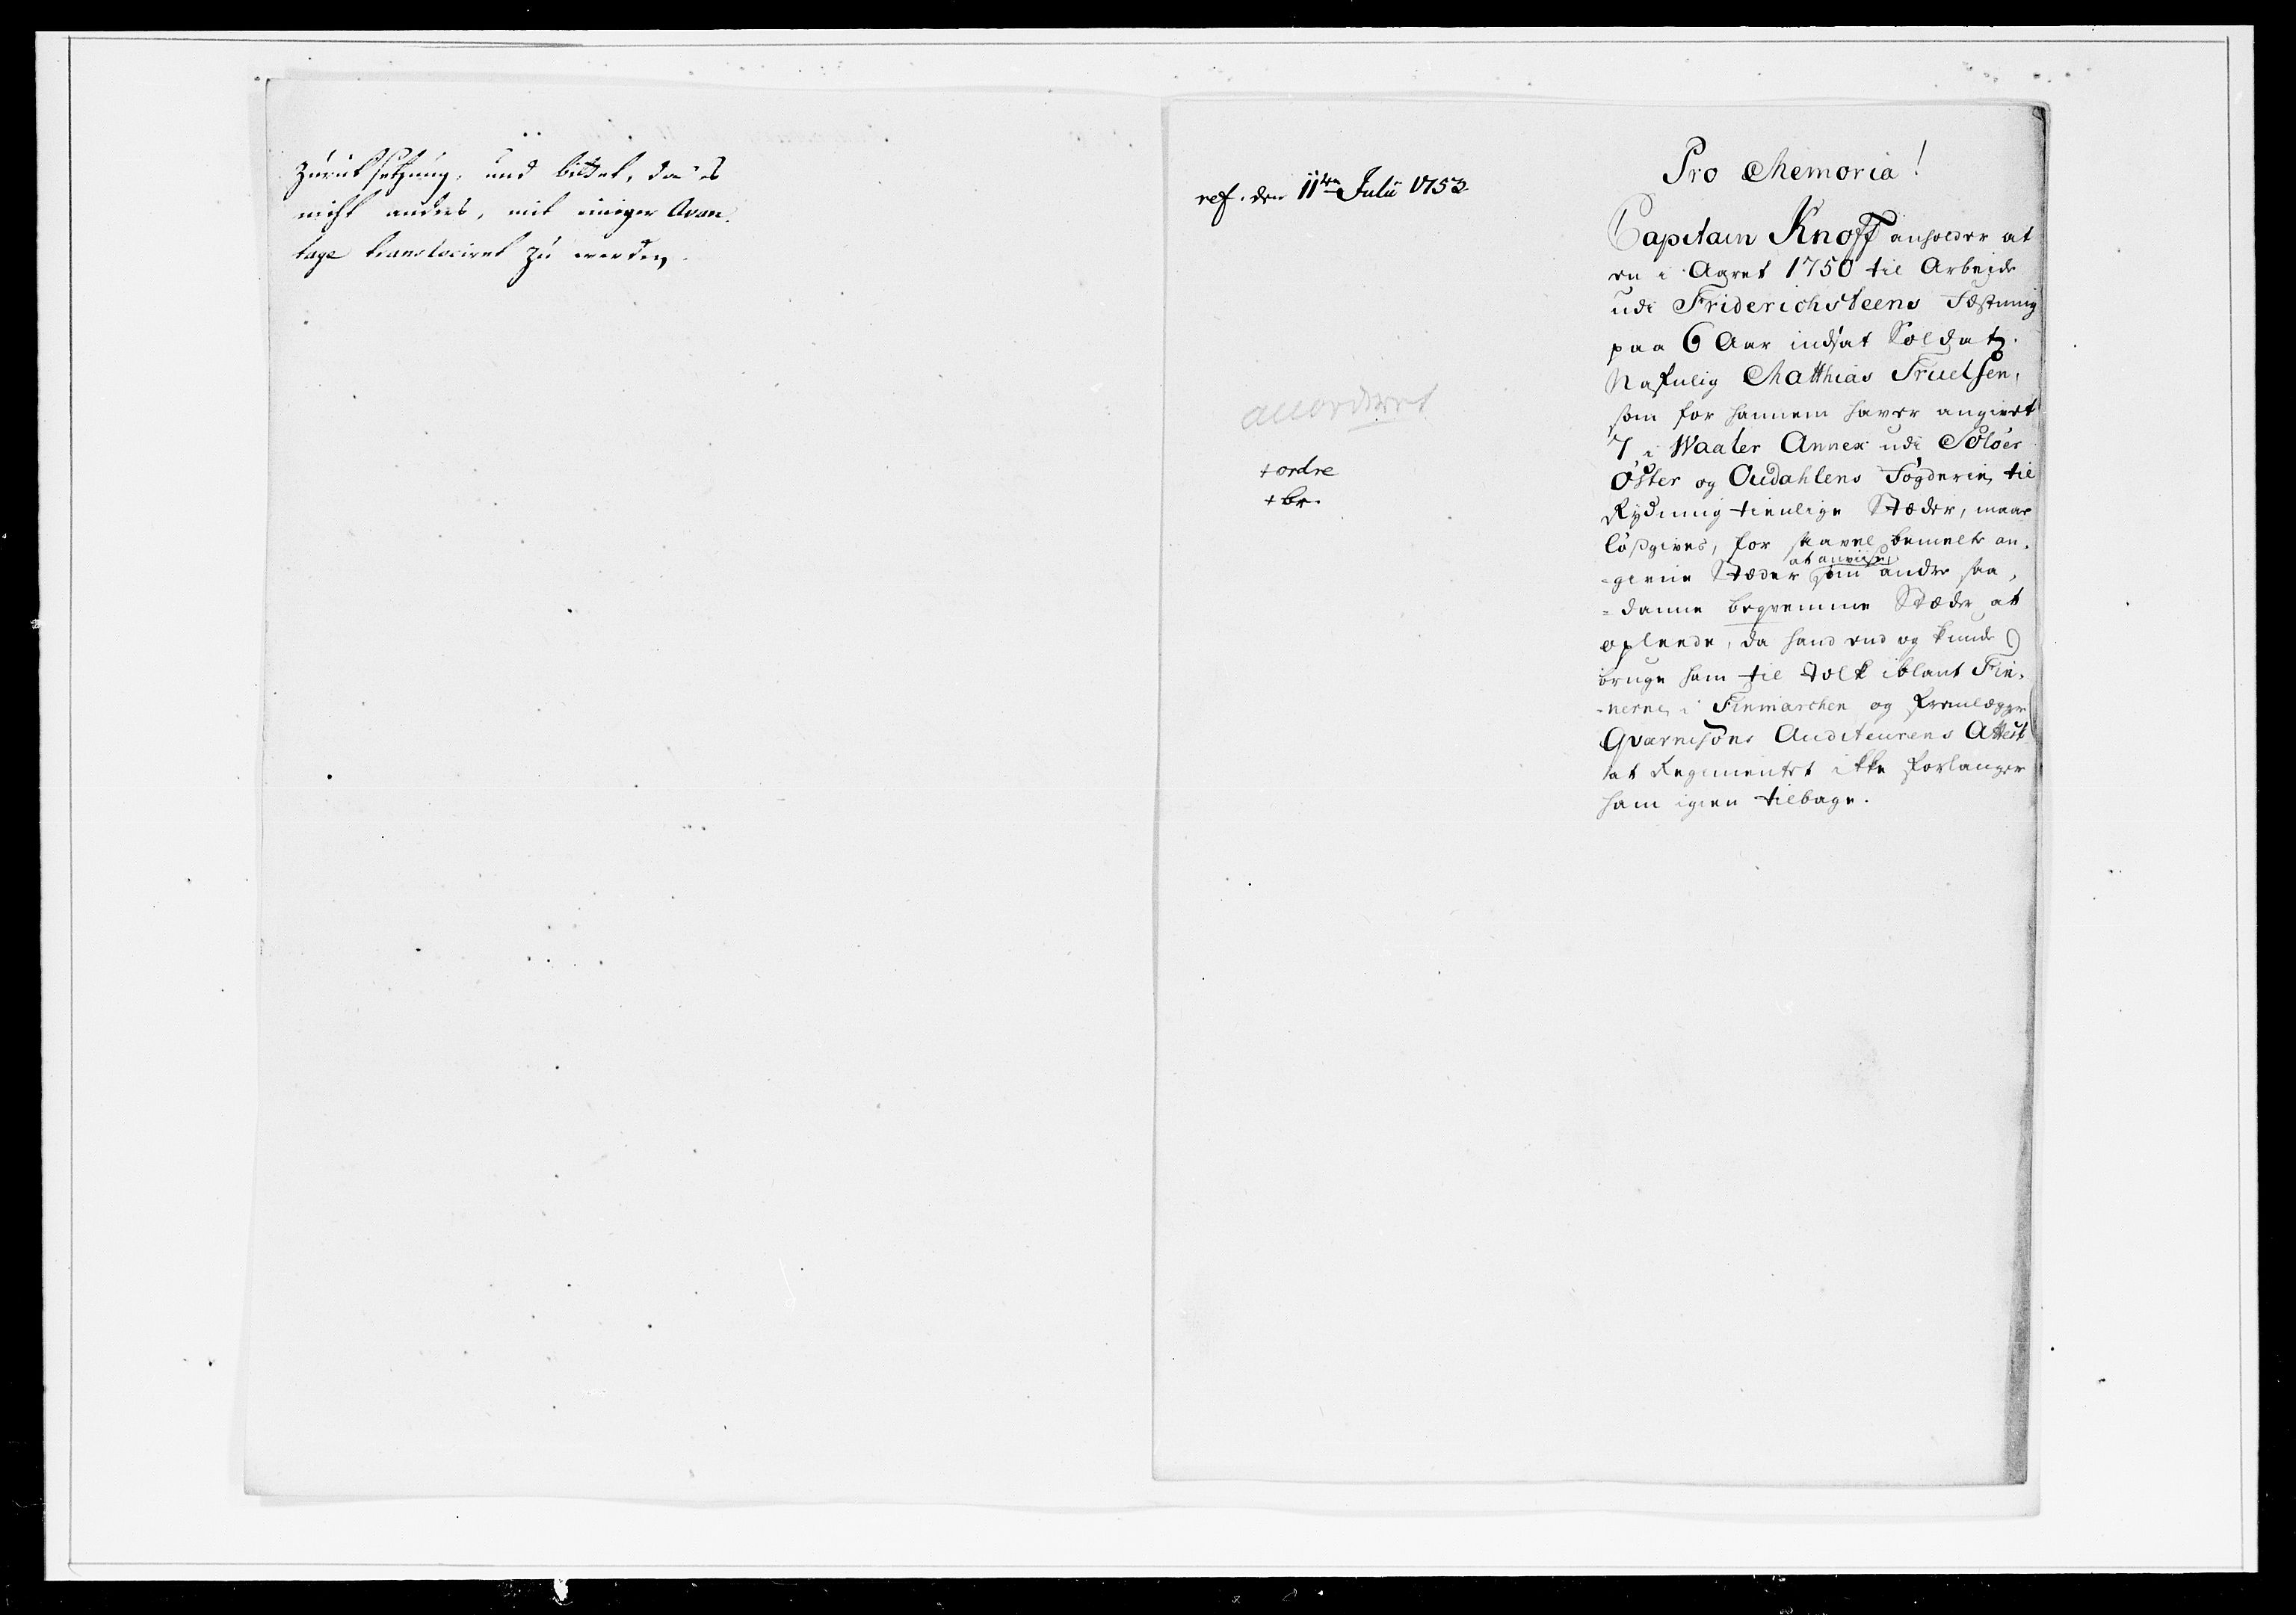 zurück setzung, und bittet, da es
nicht anders, mit einiger Avan-
tage translociret zu werden.
ref. den 11ten Julii 1753.
accorderet
+ ordre
+ br.
Pro Memoria!
Capitain Knoff anholder at
en i Aaret 1750 til Arbejde
udi Friderichsteens Fæstning
paa 6 Aar indsat Soldat
Nafnlig Matthias Truelsen,
som for hannem haver angivet
7 i Waaler Annex udi Soløer
Øster og Oudahlens Fogderie til
Rydning tienlige Stæder, maae
løsgives, for saavel bemelte an-
at anviise
-givne Stæder som andre saa-
=danne beqvemme Stæder at
opleede, da hand end og kunde
bruge ham til Tolk iblant Fin-
-nerne i Finmarchen og fremlægger
Gvarnisons Auditeurens Attest
at Regimentet ikke forlanger
ham igien tilbage.